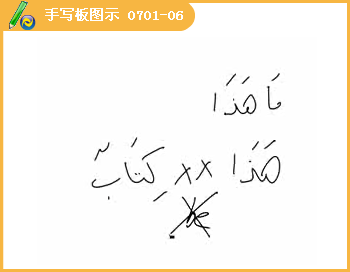 手写板图示 0701-06
مَا هَذَا
هَذَا xx كِتَابٌ